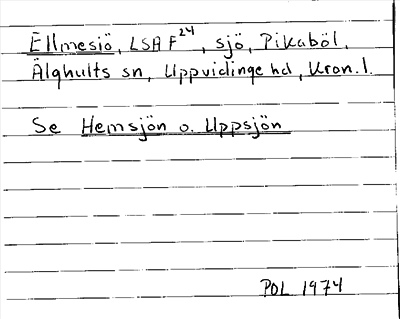 Ellmesjö, LSA F²⁴, sjö, Pikaböl,
Älghults sn, Uppvidinge hd, Kron. l.
Se Hemsjön o. Uppsjön
POL 1974